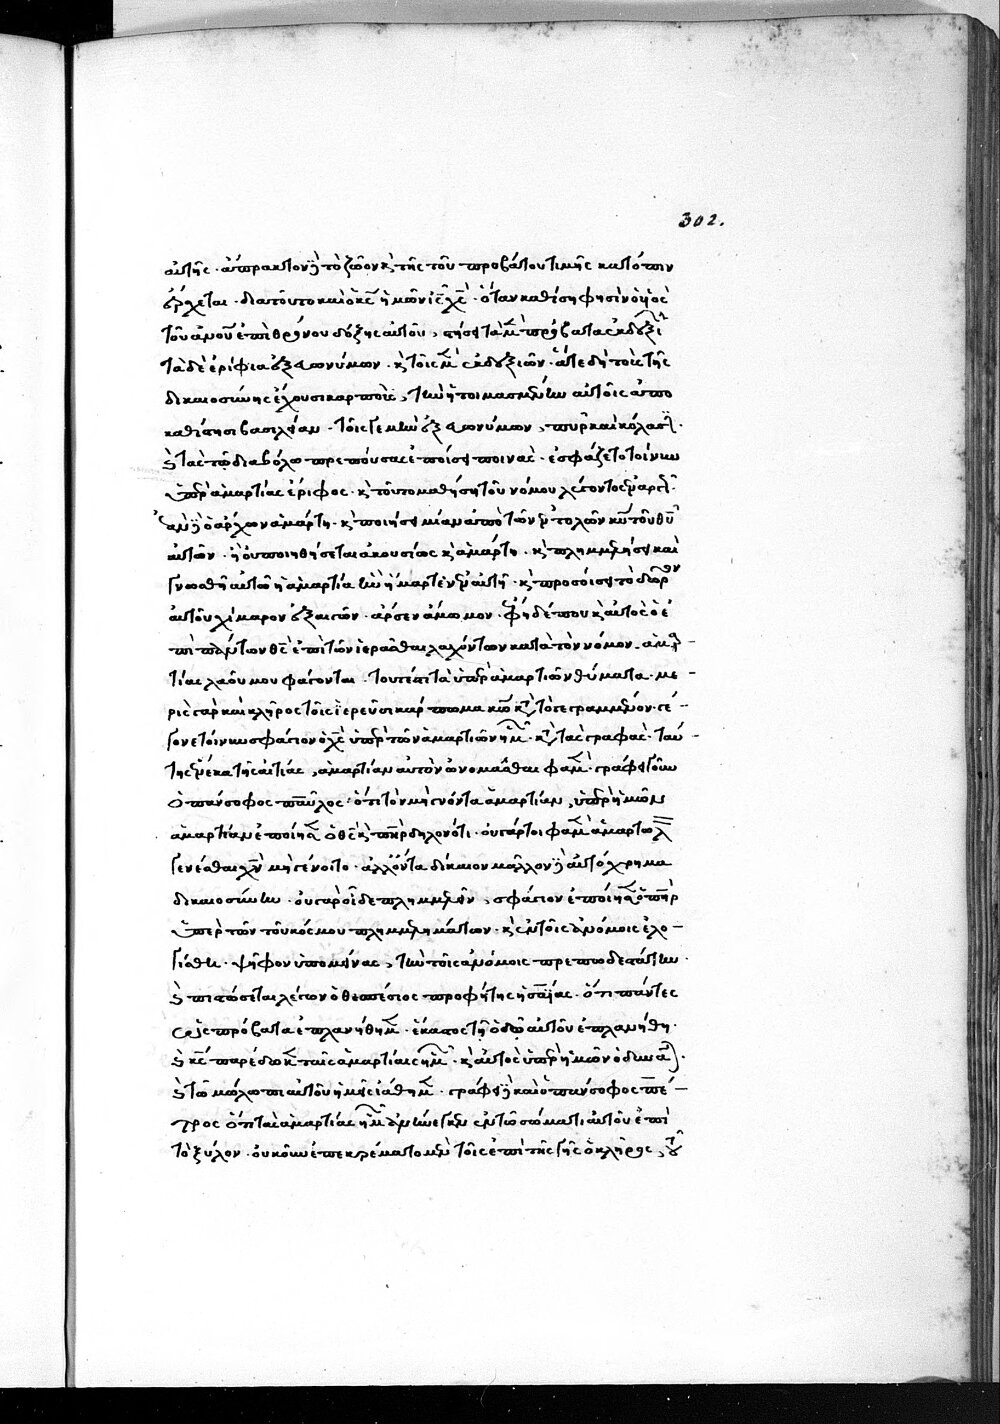 302.
αὐτῆς · ἄπρακτον γὰρ τὸ ζῶον κ τῆς τοῦ προβάτου τιμῆς κατόπιν
ἔρχεται · διὰ τοῦτο καὶ ὁ κς ἡμῶν ις χς · ὅταν καθίση φησὶν ὁ υἱὸς
τοῦ ἀνου ἐπὶ θρόνου δόξης αὐτοῦ, στήσει τὰ μὲν πρόβατα ἐκ δεξιῶν
τὰ δὲ ἐρίφια ἐξ εὐωνύμων · κ τοῖς μὲν ἐκ δεξιῶν · ἅτε δὴ τοὺς τῆς
δικαιοσύνης ἔχουσι καρποὺς, τὴν ἡτοιμασμένην αὐτοῖς ἀπο
καθίστησι βασιλείαν · τοῖς γε μὴν ἐξ εὐωνύμων, πῦρ καὶ κόλασιν ·
κ τὰς τῶ διαβόλω πρεπούσας ἐποίσει ποινὰς · ἐσφάζετο τοίνυν
ὑπὲρ ἁμαρτίας ἔριφος · κ τοῦτο μαθήση τοῦ νόμου λέγοντος ἐναργῶς ·
ἐὰν γὰρ ὁ ἄρχων ἁμάρτη · κ ποιήση μίαν ἀπὸ τῶν ἐντολῶν κυ τοῦ θυ
αὐτῶν · ἣ οὐ ποιηθήσεται ἀκουσίως κ ἁμάρτη · κ πλημμελήσει καὶ
γνωσθῆ αὐτῶ ἡ ἁμαρτία ἣν ἥμαρτεν ἐν αὐτῆ · κ προσοίσει τὸ δῶρον
αὐτοῦ χίμαρον ἐξ αἰγῶν · ἄρσεν ἄμωμον · ἔφη δέ που κ αὐτὸς ὁ ἐ
πὶ πάντων θς ἐπὶ τῶν ἱερᾶσθαι λαχόντων κατὰ τὸν νόμον · ἁμαρ-
τίας λαοῦ μου φάγονται · τουτέστι τὰ ὑπὲρ ἁμαρτιῶν θύματα · με-
ρὶς γὰρ καὶ κλῆρος τοῖς ἱερεῦσι κάρπωμα κυ κατὰ τὸ γεγραμμένον · γέ-
γονε τοίνυν σφάγιον ὁ χς ὑπὲρ τῶν ἁμαρτιῶν ἡμῶν · κατὰ τὰς γραφὰς · ταύ-
της ἕνεκα τῆς αἰτίας, ἁμαρτίαν αὐτὸν ὠνομάσθαι φαμὲν · γράφει γοῦν
ὁ πάνσοφος παῦλος · ὅτι τὸν μὴ γνόντα ἁμαρτίαν, ὑπὲρ ἡμῶν
ἁμαρτίαν ἐποίησεν ὁ θς κ πηρ δηλονότι · οὐ γάρ τοι φαμὲν ἁμαρτωλὸν
γενέσθαι χν μὴ γένοιτο · ἀλλ' ὄντα δίκαιον μᾶλλον γὰρ αὐτόχρημα
δικαιοσύνην · οὐ γὰρ οἶδε πλημμελεῖν, σφάγιον ἐποίησεν ὁ πηρ
ὑπὲρ τῶν τοῦ κόσμου πλημμελημάτων · κ ἐν τοῖς ἀνόμοις ἐλο-
γίσθη · ψῆφον ὑπομείνας, τὴν τοῖς ἀνόμοις πρεπωδεστάτην ·
κ πιστώσεται λέγων ὁ θεσπέσιος προφήτης ἡσαΐας · ὅτι πάντες
ὡς πρόβατα ἐπλανήθημεν · ἕκαστος τῆ ὁδῶ αὐτοῦ ἐπλανήθη ·
κ κς παρέδωκεν ταῖς ἁμαρτίαις ἡμῶν · κ αὐτὸς ὑπὲρ ἡμῶν ὀδυνᾶται ·
κ τῶ μώλωπι αὐτοῦ ἡμεῖς ἰάθημεν · γράφει γὰρ καὶ ὁ πάνσοφος πέ-
τρος ὅτι τὰς ἁμαρτίας ἡμῶν ἀνήνεγκεν ἐν τῶ σώματι αὐτοῦ ἐπὶ
τὸ ξύλον · οὐκοῦν ἐπεκρέματο μὲν τοῖς ἐπὶ τῆς γῆς ὁ κλῆρος, τοῦ